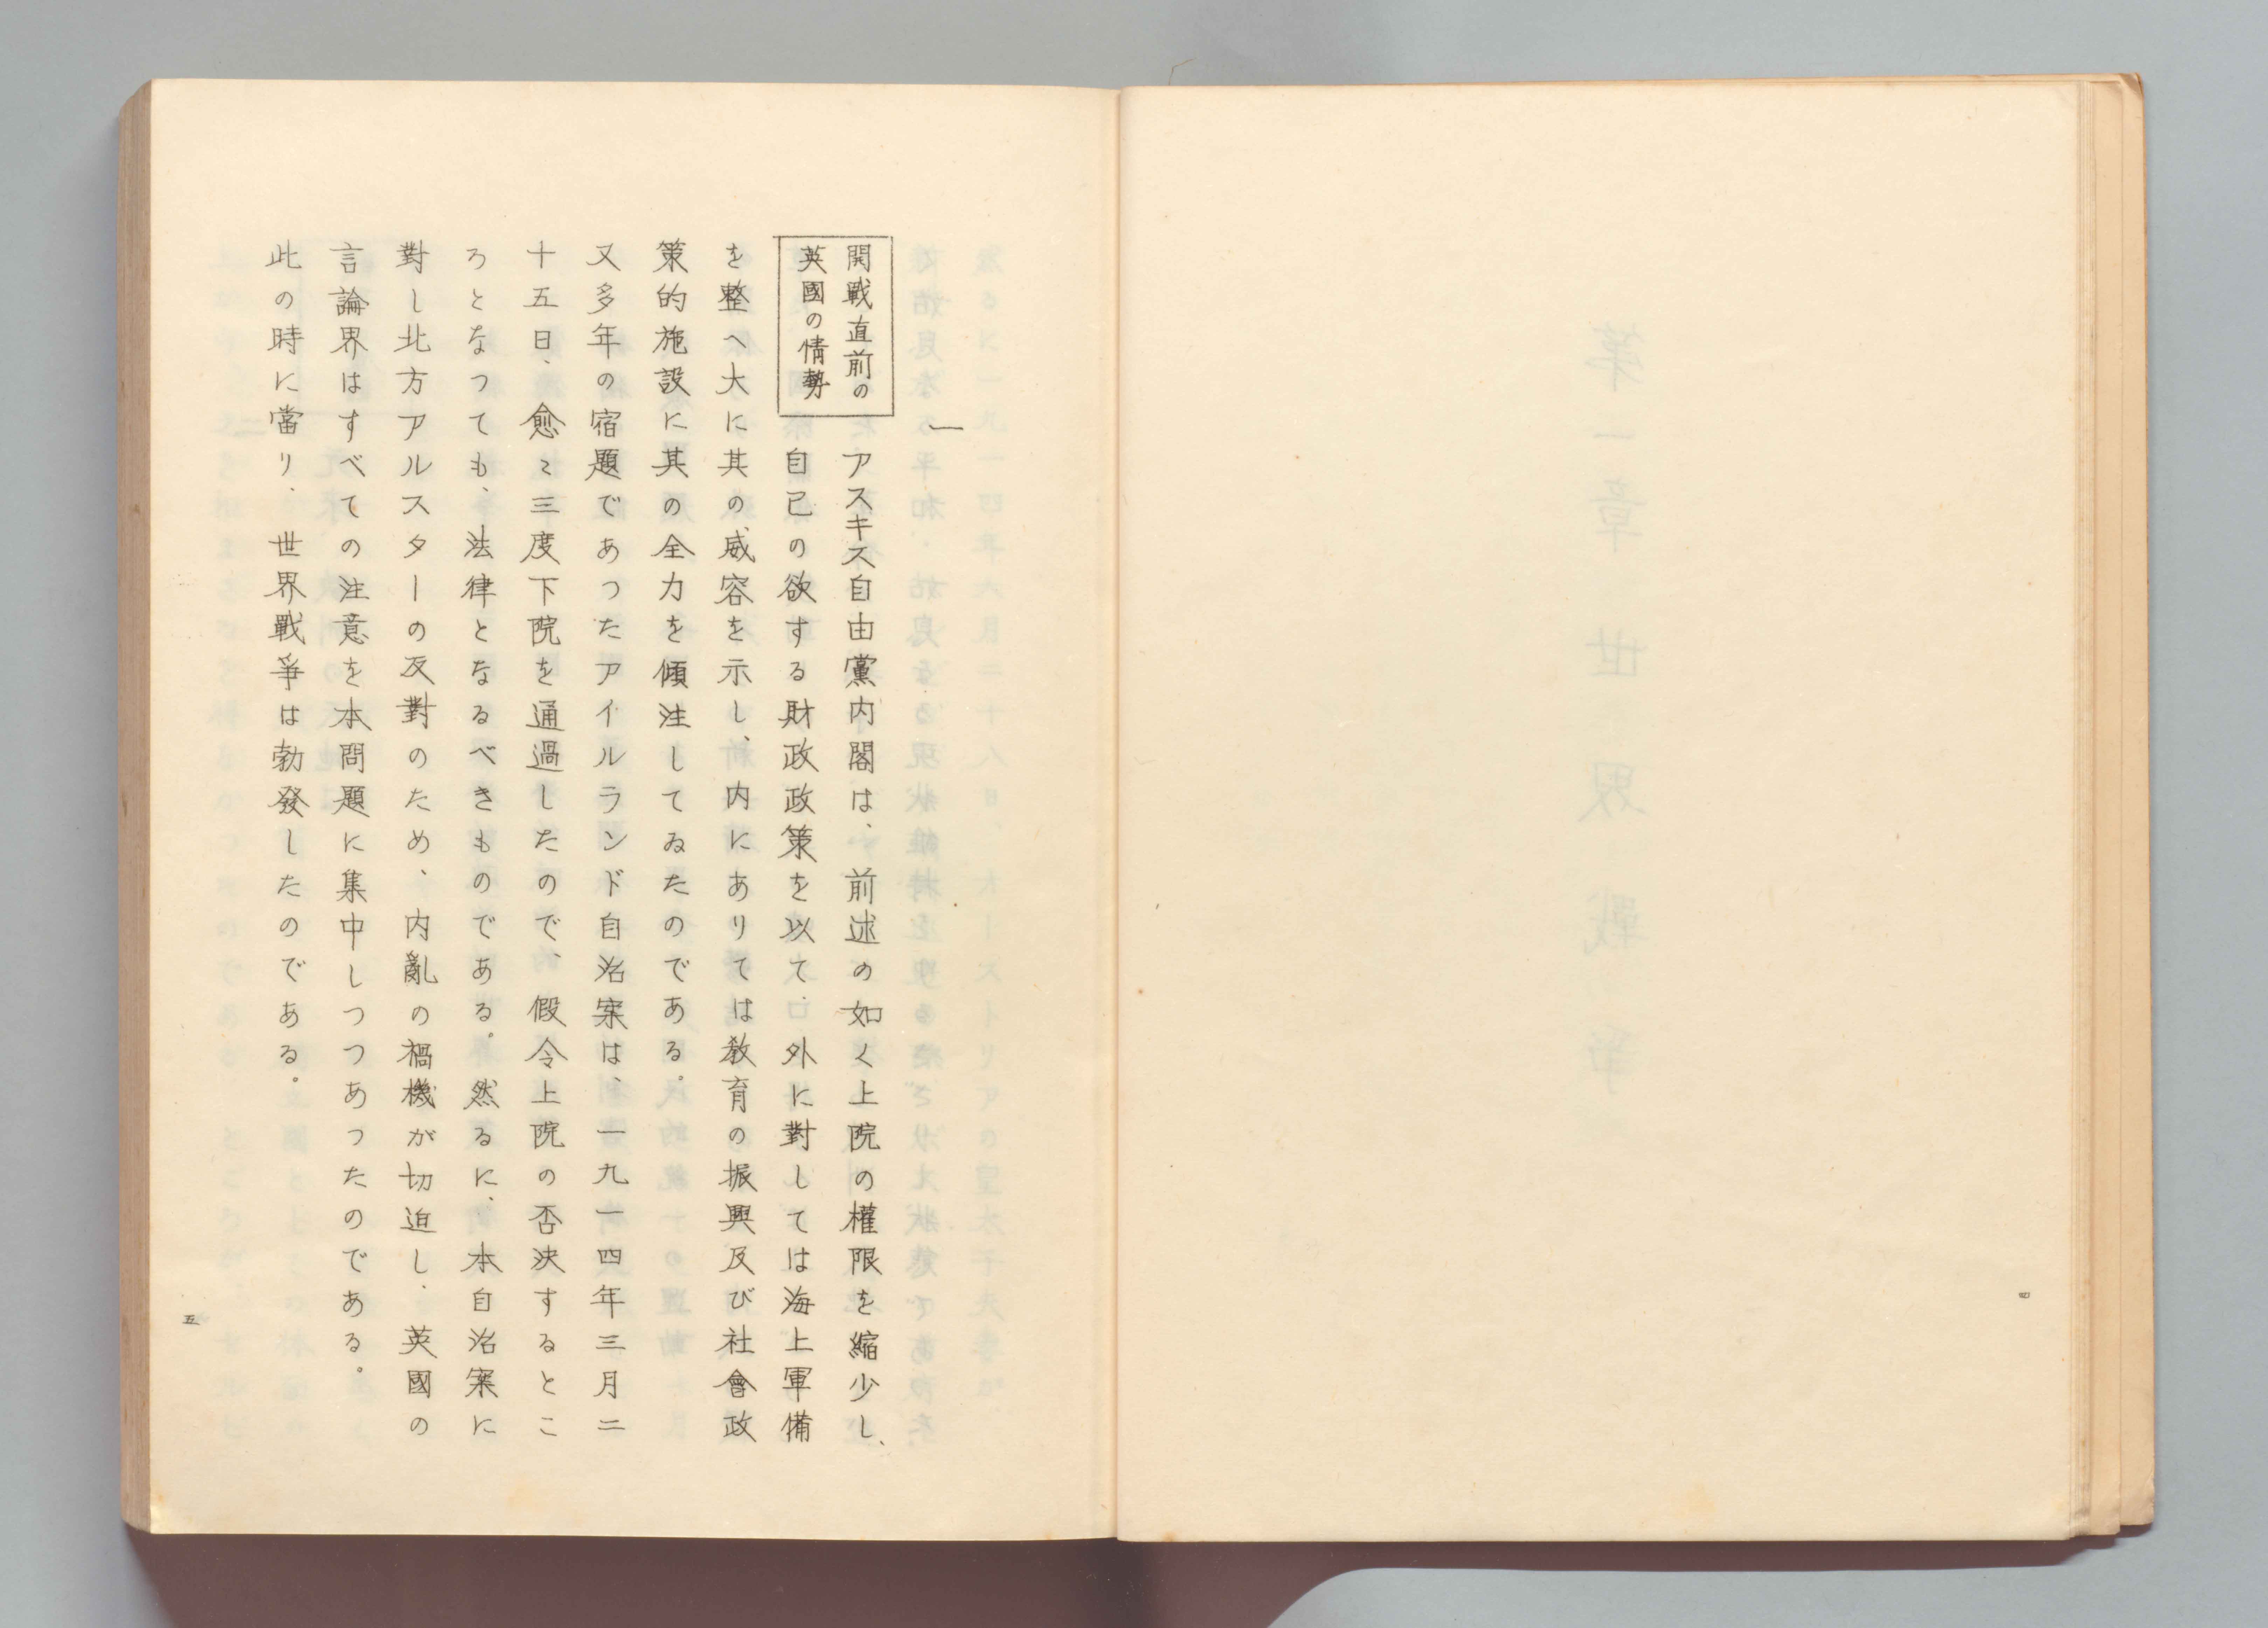 四
一
開戰直前の
英國の情勢
アスキス自由黨内閣は、前述の如く上院の權限を縮少し、
自己の欲する財政政策を以て、外に對しては海上軍備
を整へ大に其の威容を示し、内にありては教育の振興及び社會政
策的施設に其の全力を傾注してゐたのである。
又多年の宿題であつたアイルランド自治案は、一九一四年三月二
十五日、愈〻三度下院を通過したので、假令上院の否決するとこ
ろとなつても、法律となるべきものである。然るに、本自治案に
對し北方アルスターの反對のため、内亂の禍機が切迫し、英國の
言論界はすべての注意を本問題に集中しつつあつたのである。
此の時に當り、世界戰爭は勃發したのである。
五